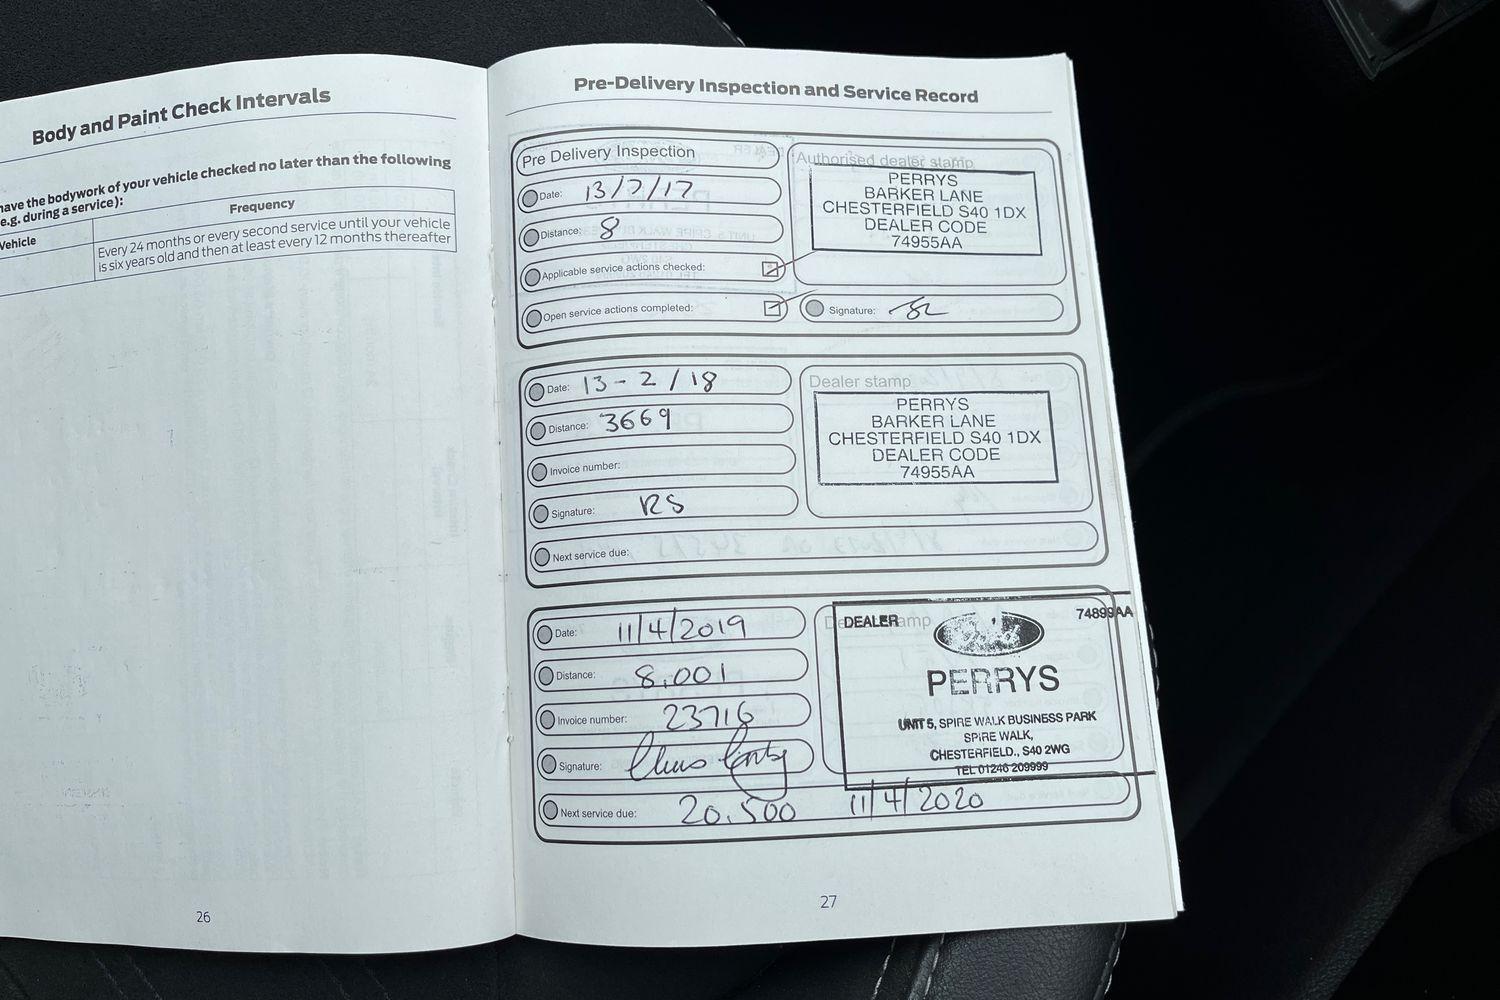 Body and Paint Check Intervals
have the bodywork of your vehicle checked no later than the following
e.g. during a service):
Vehicle
Frequency
Every 24 months or every second service until your vehicle
is six years old and then at least every 12 months thereafter
26
Pre-Delivery Inspection and Service Record
Pre Delivery Inspection
Date: 13/7/17
Distance: 8
Applicable service actions checked:
Open service actions completed:
Authorised dealer stamp
PERRYS
BARKER LANE
CHESTERFIELD S40 1DX
DEALER CODE
74955AA
Signature:
Date: 13-2/18
Distance: 3669
Invoice number:
Signature: RS
Next service due:
Dealer stamp
PERRYS
BARKER LANE
CHESTERFIELD S40 1DX
DEALER CODE
74955AA
Date: 11/4/2019
Distance: 8,001
Invoice number: 23716
Signature: Chris
Next service due: 20,500 11/4/2020
DEALER 74899AA
PERRYS
UNIT 5, SPIRE WALK BUSINESS PARK
SPIRE WALK,
CHESTERFIELD., S40 2WG
TEL 01246 209999
27